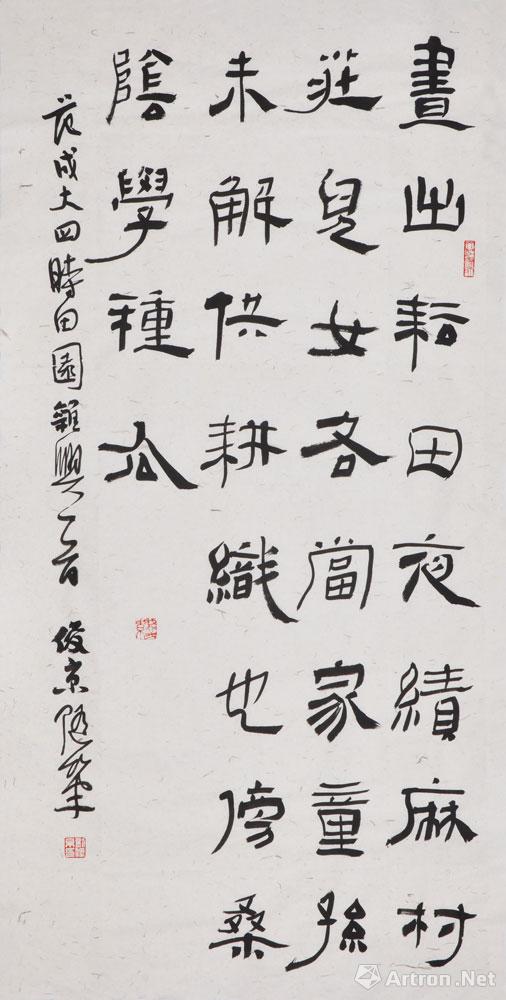 晝出耘田夜績麻村
莊兒女各當家童孫
未解供耕織也傍桑
陰學種瓜
范成大四時田園雜興一首 俊京隨筆
Artron.Net